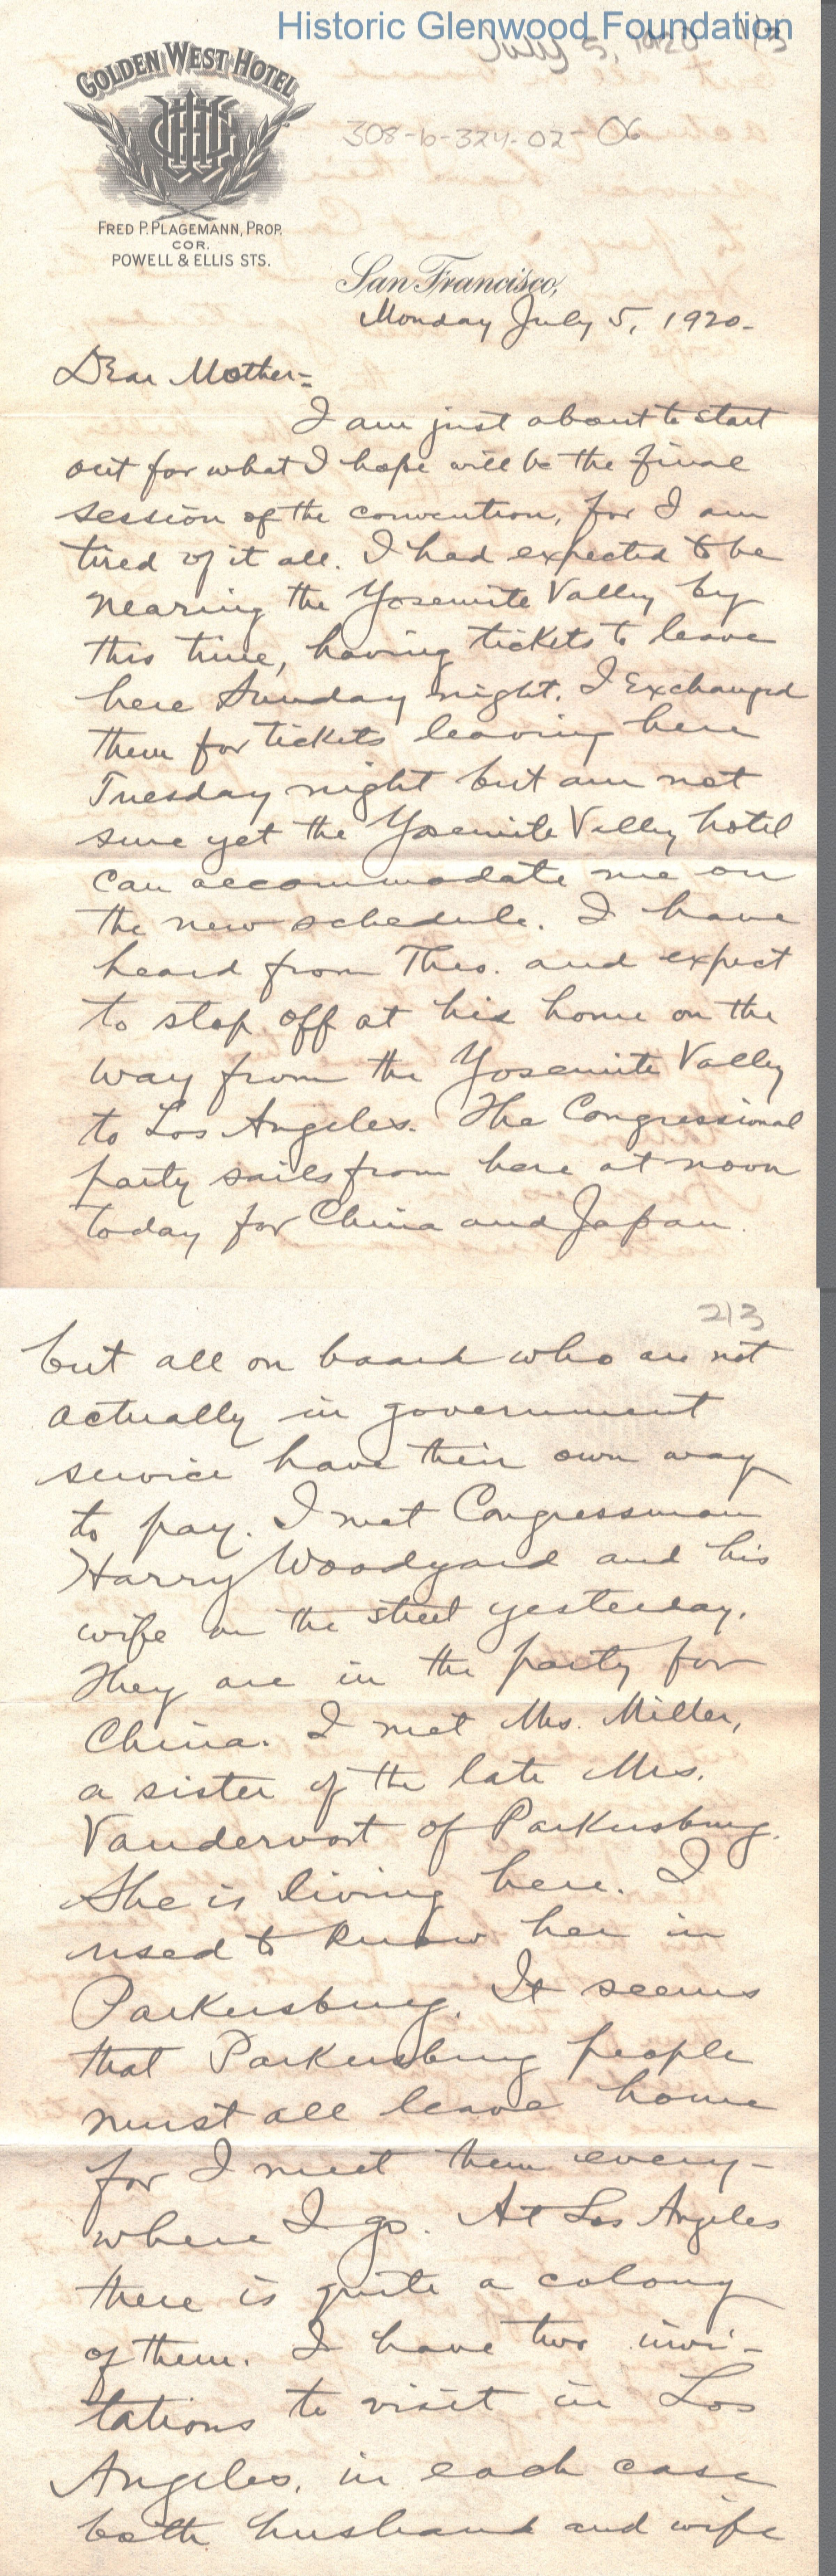 Historic Glenwood Foundation
July 5, 1920 1/3
GOLDEN WEST HOTEL
308-b-324-02-06
FRED P. PLAGEMANN, PROP.
COR.
POWELL & ELLIS STS.
San Francisco,
Monday July 5, 1920-
Dear Mother:-
I am just about to start
out for what I hope will be the final
session of the convention, for I am
tired of it all. I had expected to be
nearing the Yosemite Valley by
this time, having tickets to leave
here Sunday night. I exchanged
them for tickets leaving here
Tuesday night but am not
sure yet the Yosemite Valley hotel
can accommodate me on
the new schedule. I have
heard from Theo. and expect
to stop off at his home on the
way from the Yosemite Valley
to Los Angeles. The Congressional
party sails from here at noon
today for China and Japan.
2/3
but all on board who are not
actually in government
service have their own way
to pay. I met Congressman
Harry Woodyard and his
wife on the street yesterday.
They are in the party for
China. I met Mrs. Miller,
a sister of the late Mrs.
Vandervort of Parkersburg.
She is living here. I
used to know her in
Parkersburg. It seems
that Parkersburg people
must all leave home
for I meet them every-
where I go. At Los Angeles
there is quite a colony
of them. I have two invi-
tations to visit in Los
Angeles, in each case
both husband and wife